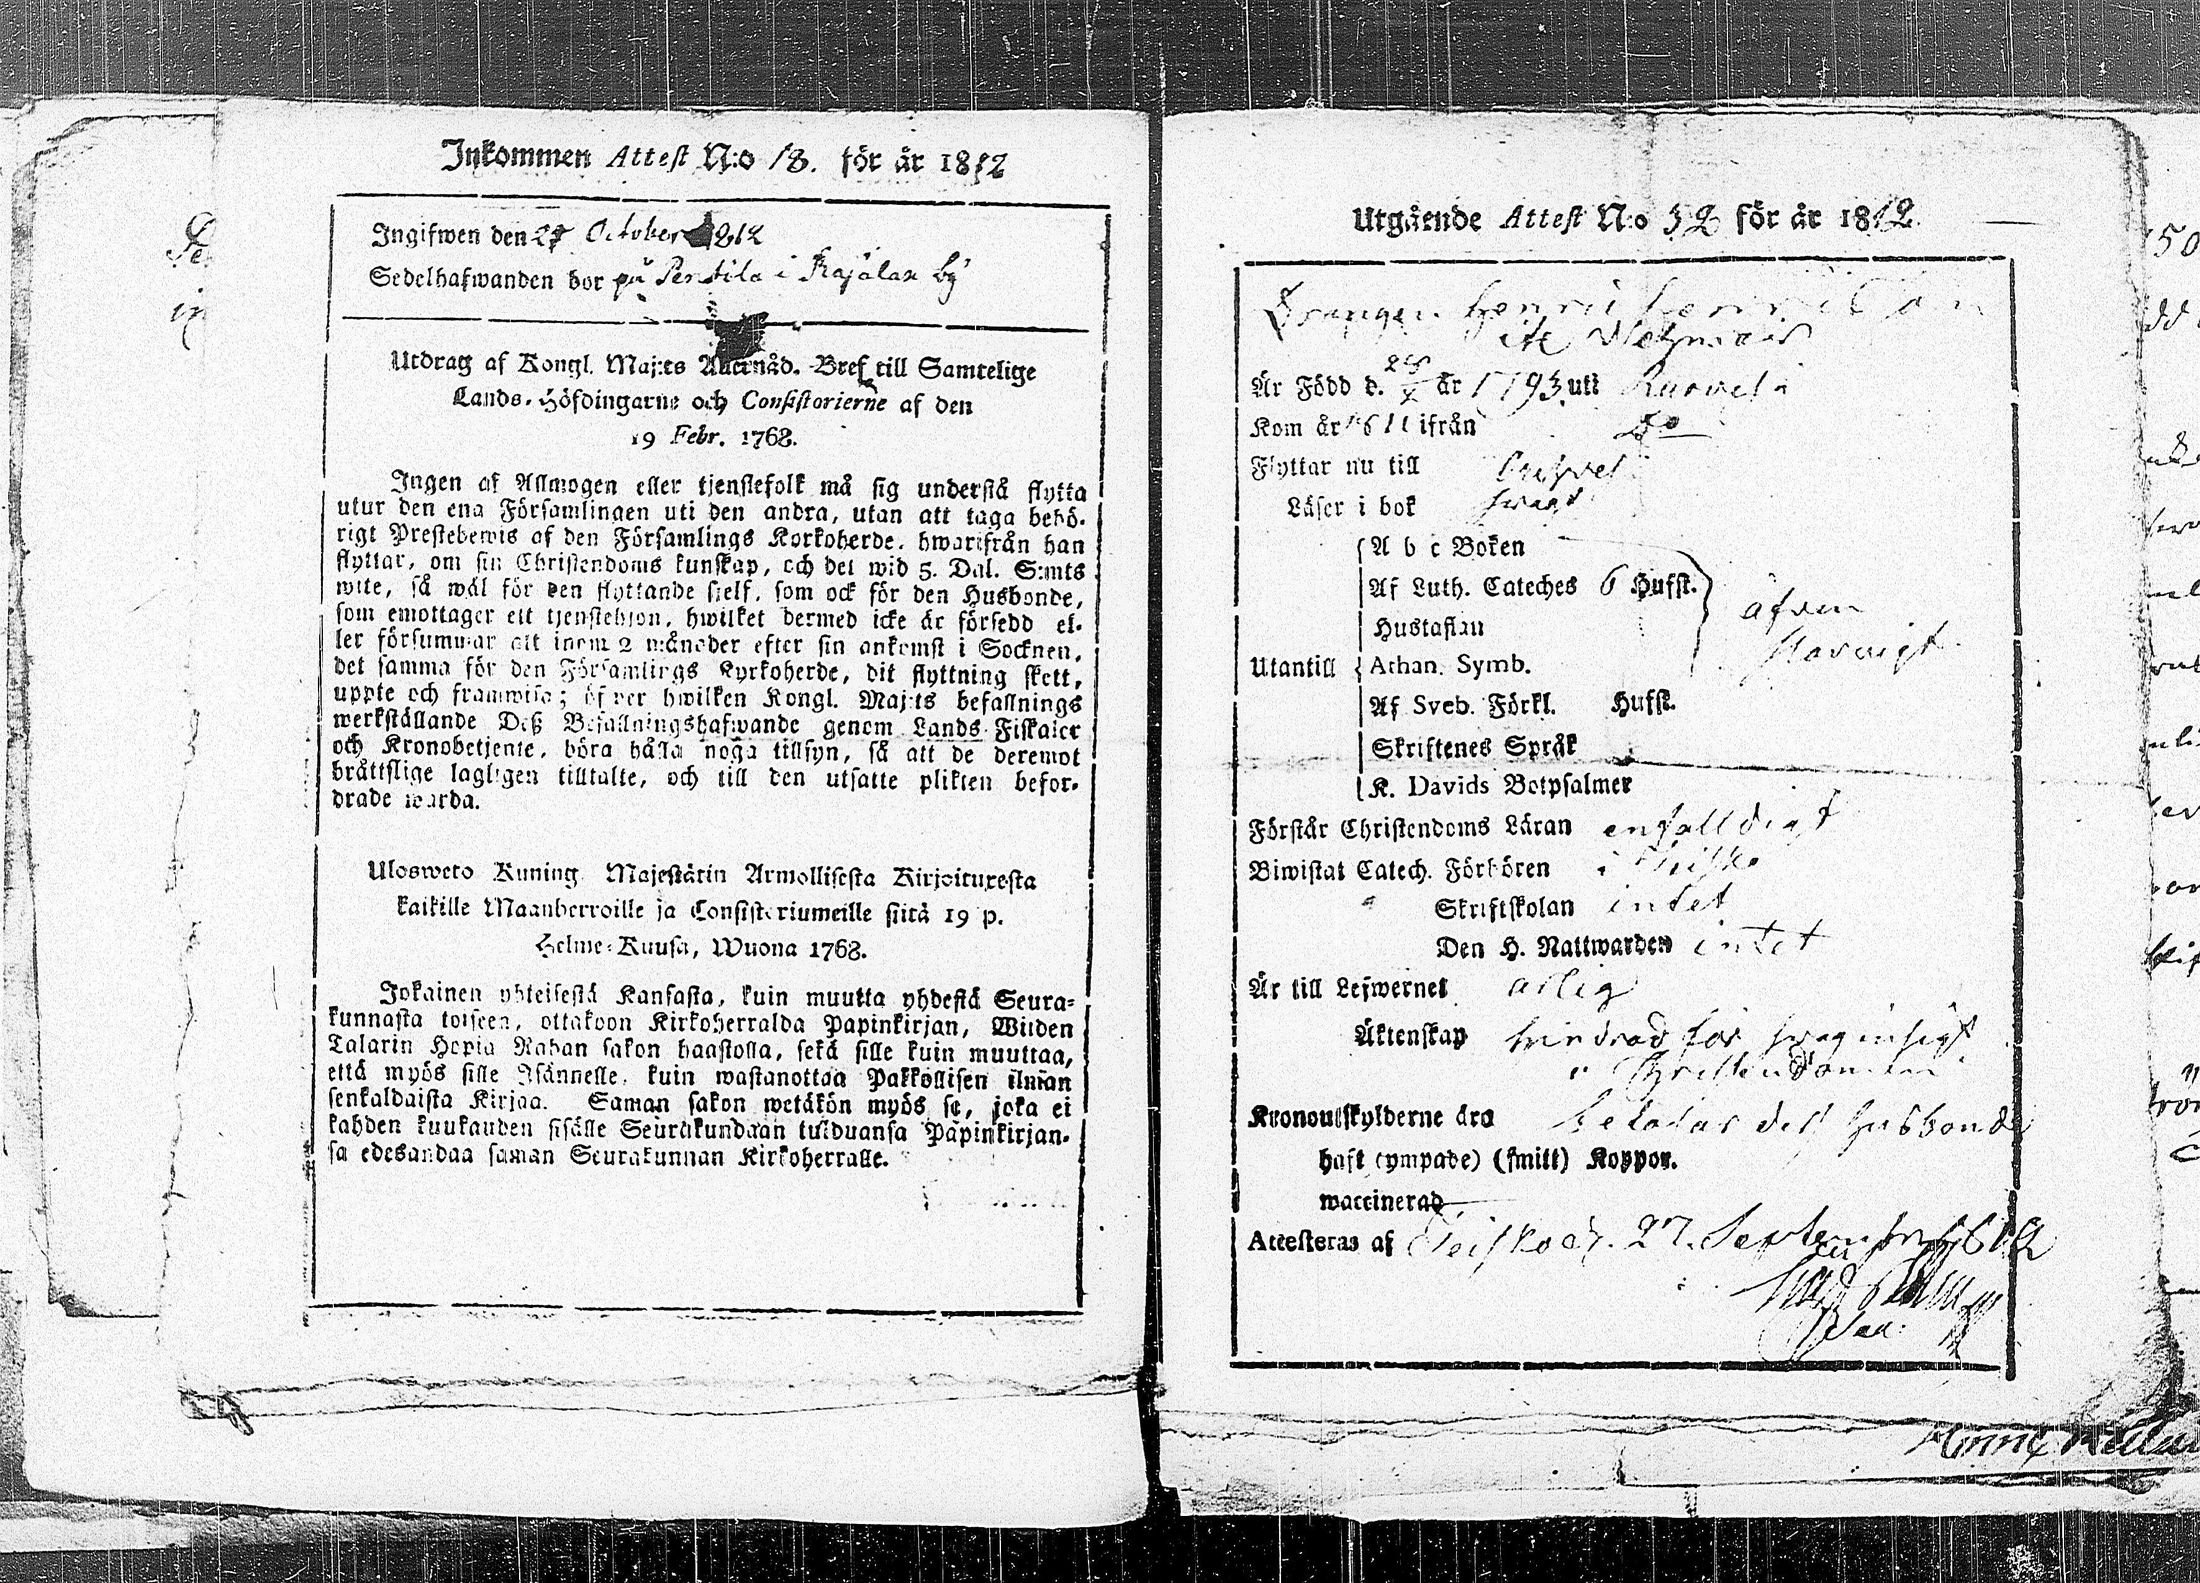 Inkommen Attest N:o 18. för år 1812
Ingifwen den 27 October 1812
Sedelhafwanden bor på Perttila i Kajala by
Utdrag af Kongl. Maj:ts Allernåd. Bref till Samtelige
Lands-Höfdingarne och Consistorierne af den
19 Febr. 1768.
Ingen af Allmogen eller tjenstefolk må sig understå flytta
utur den ena Församlingen uti den andra, utan att taga behö-
rigt Prestebewis af den Församlings Kyrkoherde, hwarifrån han
flyttar, om sin Christendoms kunskap, och det wid 5. Dal. S:mts
wite, så wäl för den flyttande sjelf, som ock för den Husbonde,
som emottager ett tjenstehjon, hwilket dermed icke är försedd el-
ler försummar att inom 2 månader efter sin ankomst i Socknen,
det samma för den Församlings Kyrkoherde, dit flyttning skett,
uppte och framwisa; öfwer hwilken Kongl. Maj:ts befallnings
werkställande Deß Befallningshafwande genom Lands Fiskaler
och Kronobetjente, böra hålla noga tillsyn, så att de deremot
bråttslige lagligen tilltalte, och till den utsatte plikten befor-
drade warda.
Ulosweto Kuning. Majestätin Armollisesta Kirjoituxesta
kaikille Maanherroille ja Consistoriumeille siitä 19 p.
Helme-Kuusa, Wuona 1768.
Jokainen yhteisestä Kansasta, kuin muutta yhdestä Seura-
kunnasta toiseen, ottakoon Kirkoherralda Papinkirjan, Wiiden
Talarin Hopia Rahan sakon haastolla, sekä sille kuin muuttaa,
että myös sille Isännelle, kuin wastanottaa Palkollisen ilman
senkaldaista Kirjaa. Saman sakon wetäkön myös se, joka ei
kahden kuukauden sisälle Seurakundaan tulduansa Papinkirjan-
sa edesandaa saman Seurakunnan Kirkoherralle.
Utgående Attest N:o 52 för år 1812.
Drängen Henric Henricsson
Är Född d. 28 år 1793 uti Ruowesi
Kom år 1811 ifrån Do
Flyttar nu till
Läser i bok swagt
A b c Boken
Af Luth. Cateches 6 Hufst. äfven
Hustaflan
Utantill Athan. Symb.
Af Sveb. Förkl. Hufst.
Skriftenes Språk
K. Davids Botpsalmer
Förstår Christendoms Läran enfalldigt
Biwistat Catech. Förhören i Teisko
Skriftskolan intet
Den H. Nattwarden intet
Är till Lefwernet ärlig
Äktenskap hindrad för swag insigt
i Christendomen
Kronoutskylderne äro betalas af Husbonde
haft (ympade) (smitt) Koppor.
waccinerad
Attesteras af Teisko d. 27. September 1812